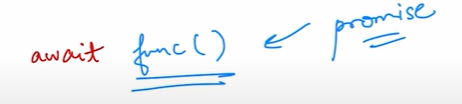 await func() ← promise